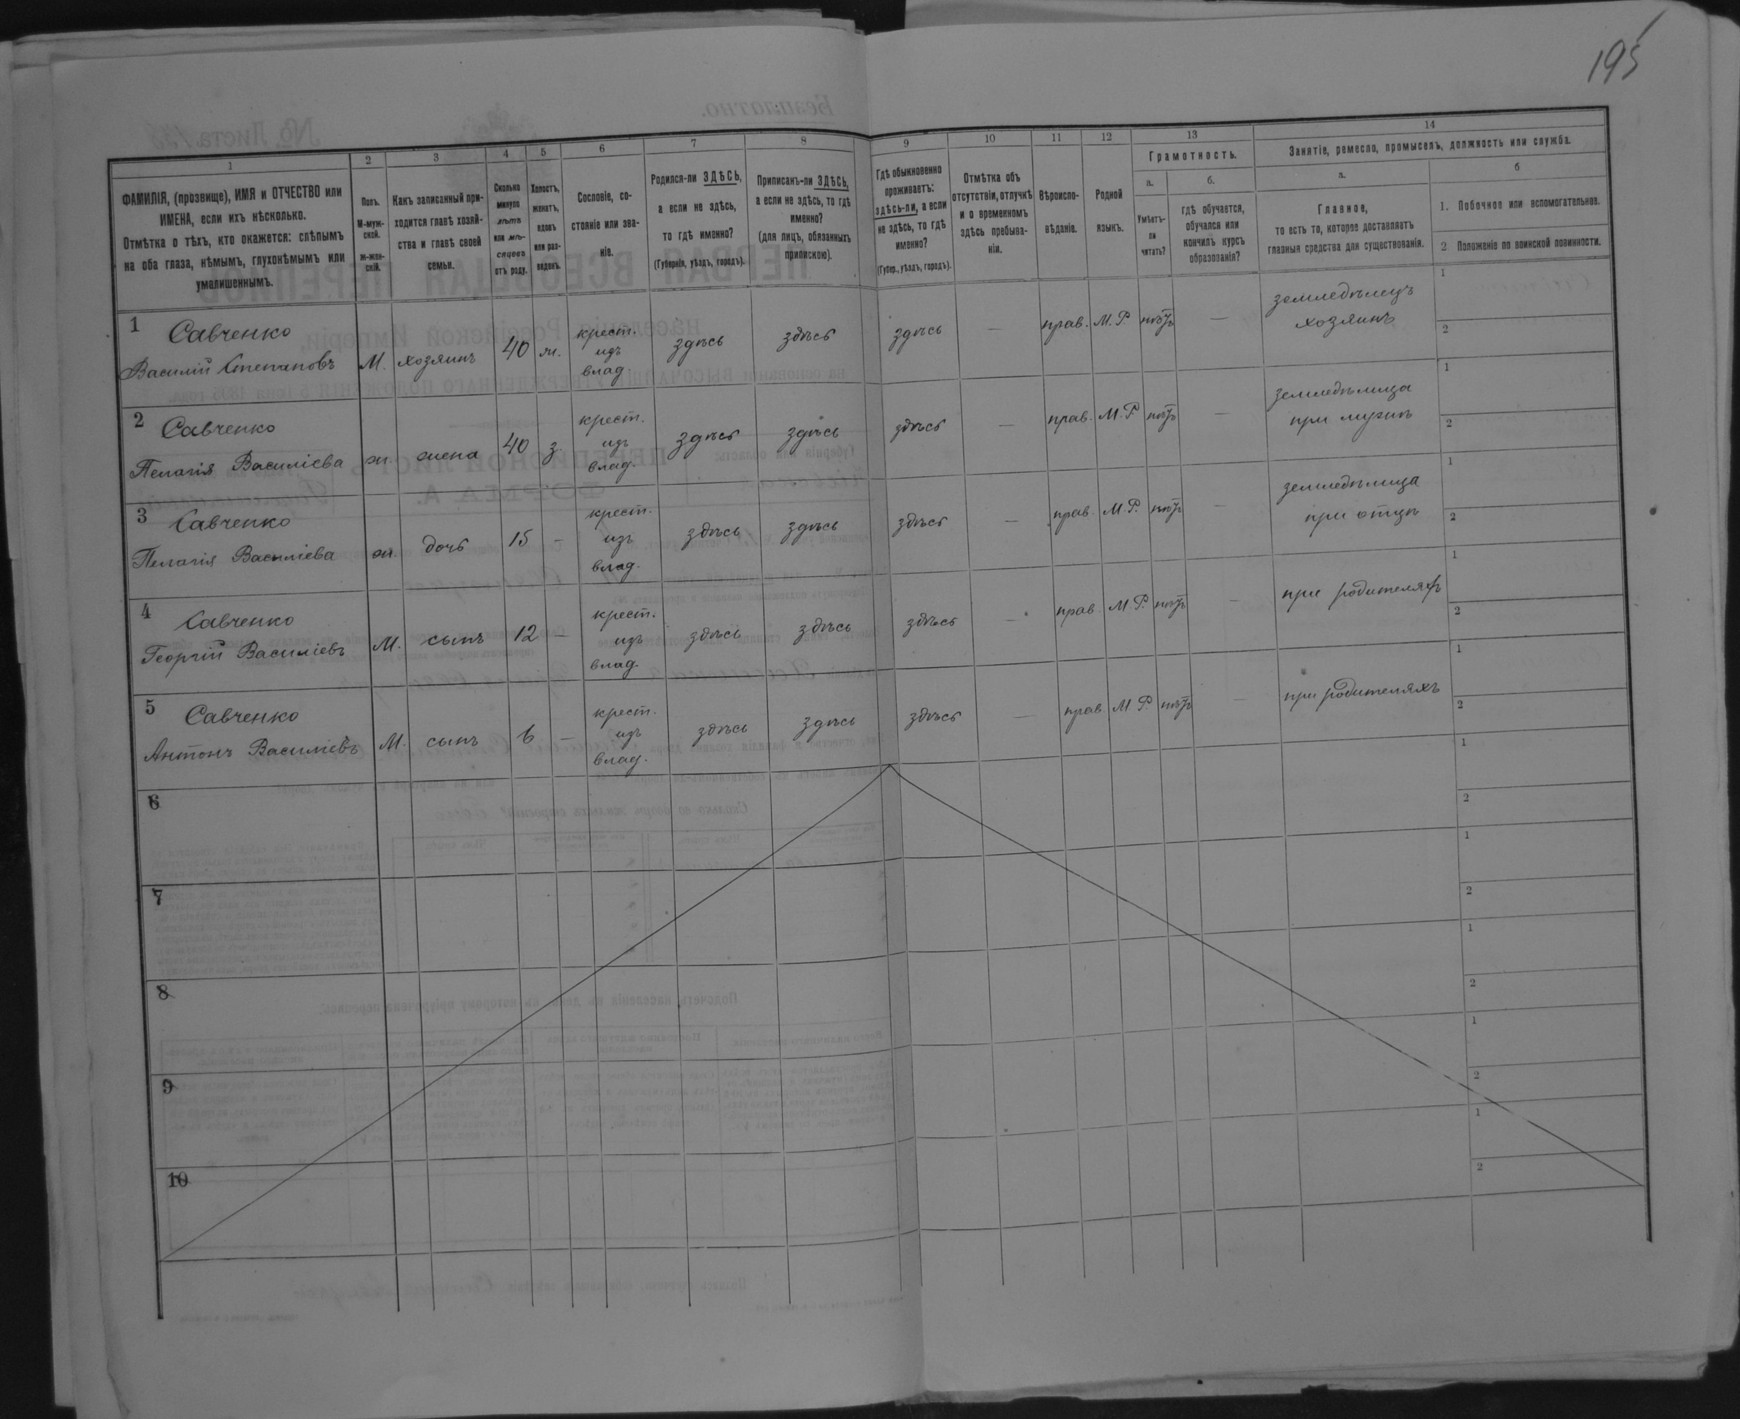 195
1
2
3
4
5
6
7
8
9
10
11
12
13
14
ФАМИЛІЯ, (прозвище), ИМЯ и ОТЧЕСТВО или
ИМЕНА, если ихъ нѣсколько.
Отмѣтка о тѣхъ, кто окажется: слѣпымъ
на оба глаза, нѣмымъ, глухонѣмымъ или
умалишеннымъ.
Полъ.
М-муж-
ской.
Ж-жен-
скій.
Какъ записанный при-
ходится главѣ хозяй-
ства и главѣ своей
семьи.
Сколько
минуло
лѣтъ
или мѣ-
сяцевъ
отъ роду.
Холостъ,
женатъ,
вдовъ
или раз-
веденъ.
Сословіе, со-
стояніе или зва-
ніе.
Родился-ли ЗДѢСЬ,
а если не здѣсь,
то гдѣ именно?
(Губернія, уѣздъ, городъ).
Приписанъ-ли ЗДѢСЬ,
а если не здѣсь, то гдѣ
именно?
(для лицъ, обязанныхъ
припискою).
Гдѣ обыкновенно
проживаетъ:
здѣсь-ли, а если
не здѣсь, то гдѣ
именно?
(Губер., уѣздъ, городъ).
Отмѣтка объ
отсутствіи, отлучкѣ
и о временномъ
здѣсь пребыва-
ніи.
Вѣроиспо-
вѣданіе.
Родной
языкъ.
Грамотность.
а.
Умѣетъ-
ли
читать?
б.
гдѣ обучается,
обучался или
кончилъ курсъ
образованія?
Занятіе, ремесло, промыселъ, должность или служба.
а.
Главное,
то есть то, которое доставляетъ
главныя средства для существованія.
б
1. Побочное или вспомогательное.
2 Положеніе по воинской повинности.
1 Савченко
Василій Степановъ М. хозяинъ 40 ж. крест. изъ влад. здѣсь здѣсь здѣсь — прав. М.Р. нѣтъ — земледѣлецъ хозяинъ 1 2
2 Савченко
Пелагія Василіева ж. жена 40 з крест. изъ влад. здѣсь здѣсь здѣсь — прав. М.Р. нѣтъ — земледѣлица при мужѣ 1 2
3 Савченко
Пелагія Василіева ж. дочь 15 — крест. изъ влад. здѣсь здѣсь здѣсь — прав. М.Р. нѣтъ — земледѣлица при отцѣ 1 2
4 Савченко
Георгій Василіевъ М. сынъ 12 — крест. изъ влад. здѣсь здѣсь здѣсь — прав. М.Р. нѣтъ — при родителяхъ 1 2
5 Савченко
Антонъ Василіевъ М. сынъ 6 — крест. изъ влад. здѣсь здѣсь здѣсь — прав. М.Р. нѣтъ — при родителяхъ 1 2
6 1 2
7 1 2
8 1 2
9 1 2
10 1 2